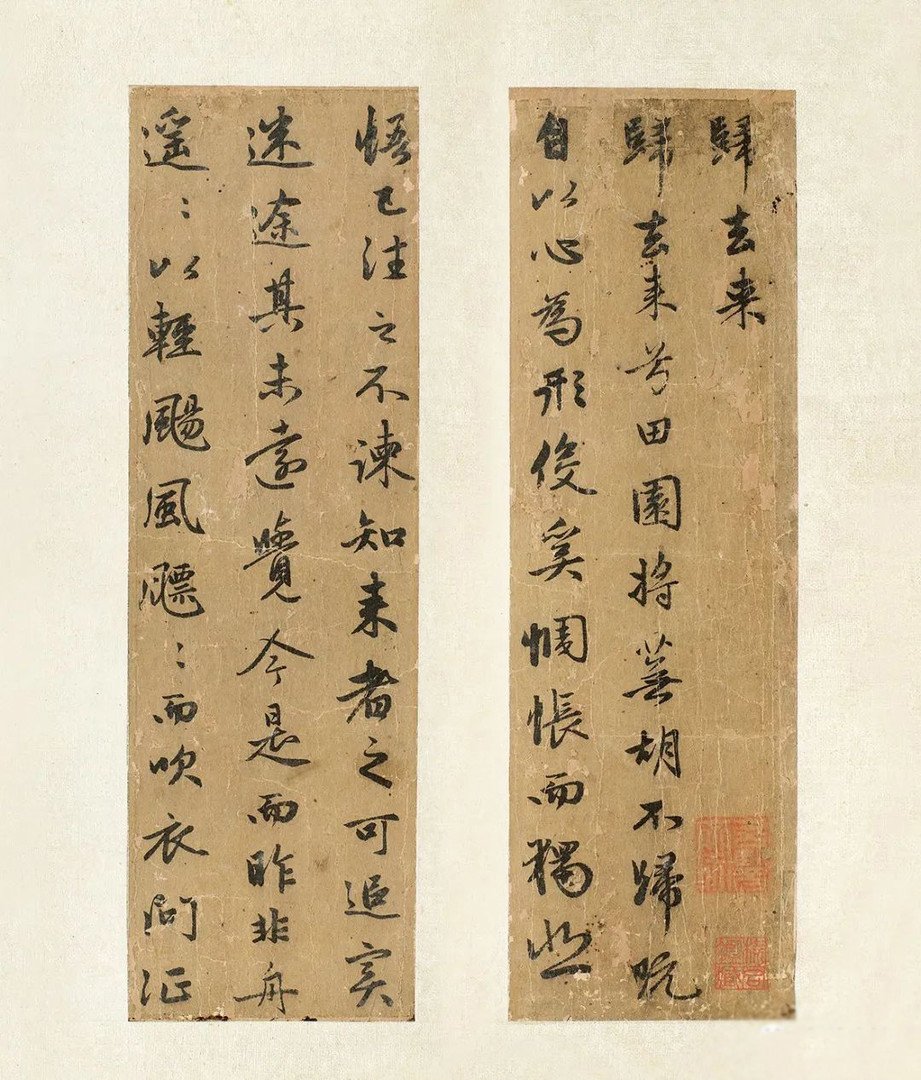 歸去来
歸去来兮田園将蕪胡不歸既
自以心為形役奚惆悵而獨悲
悟已往之不諫知来者之可追實
迷途其未遠覺今是而昨非舟
遥〻以輕颺風飄〻而吹衣問征